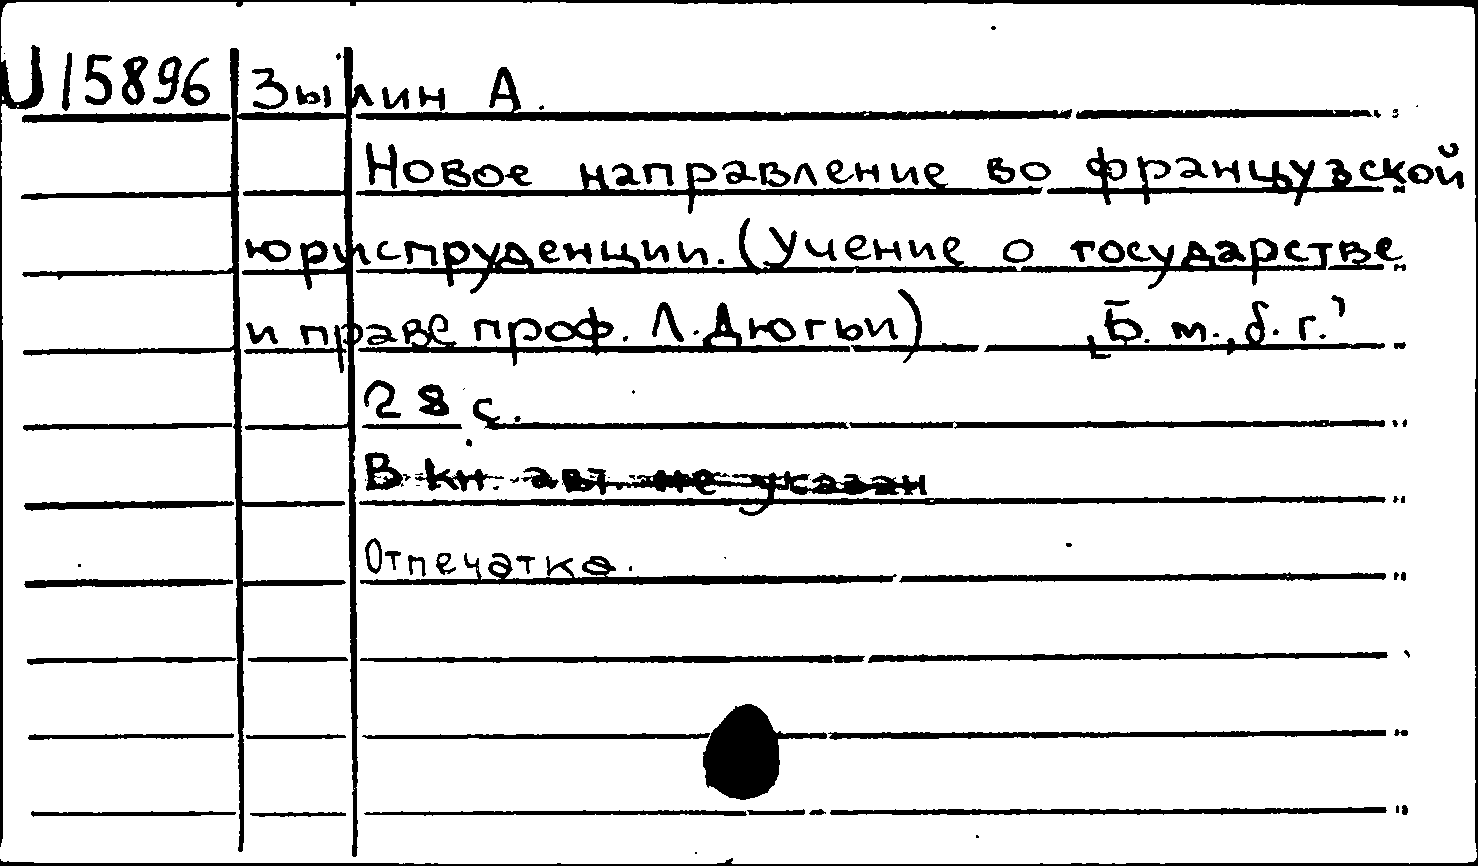 U15896 Зылин А.
Новое направление во французской
юриспруденции. (Учение о государстве
и праве проф. Л. Дюгьи) [Б. м., б. г.]
28 с.
В кн. авт. не указан
Отпечатка.